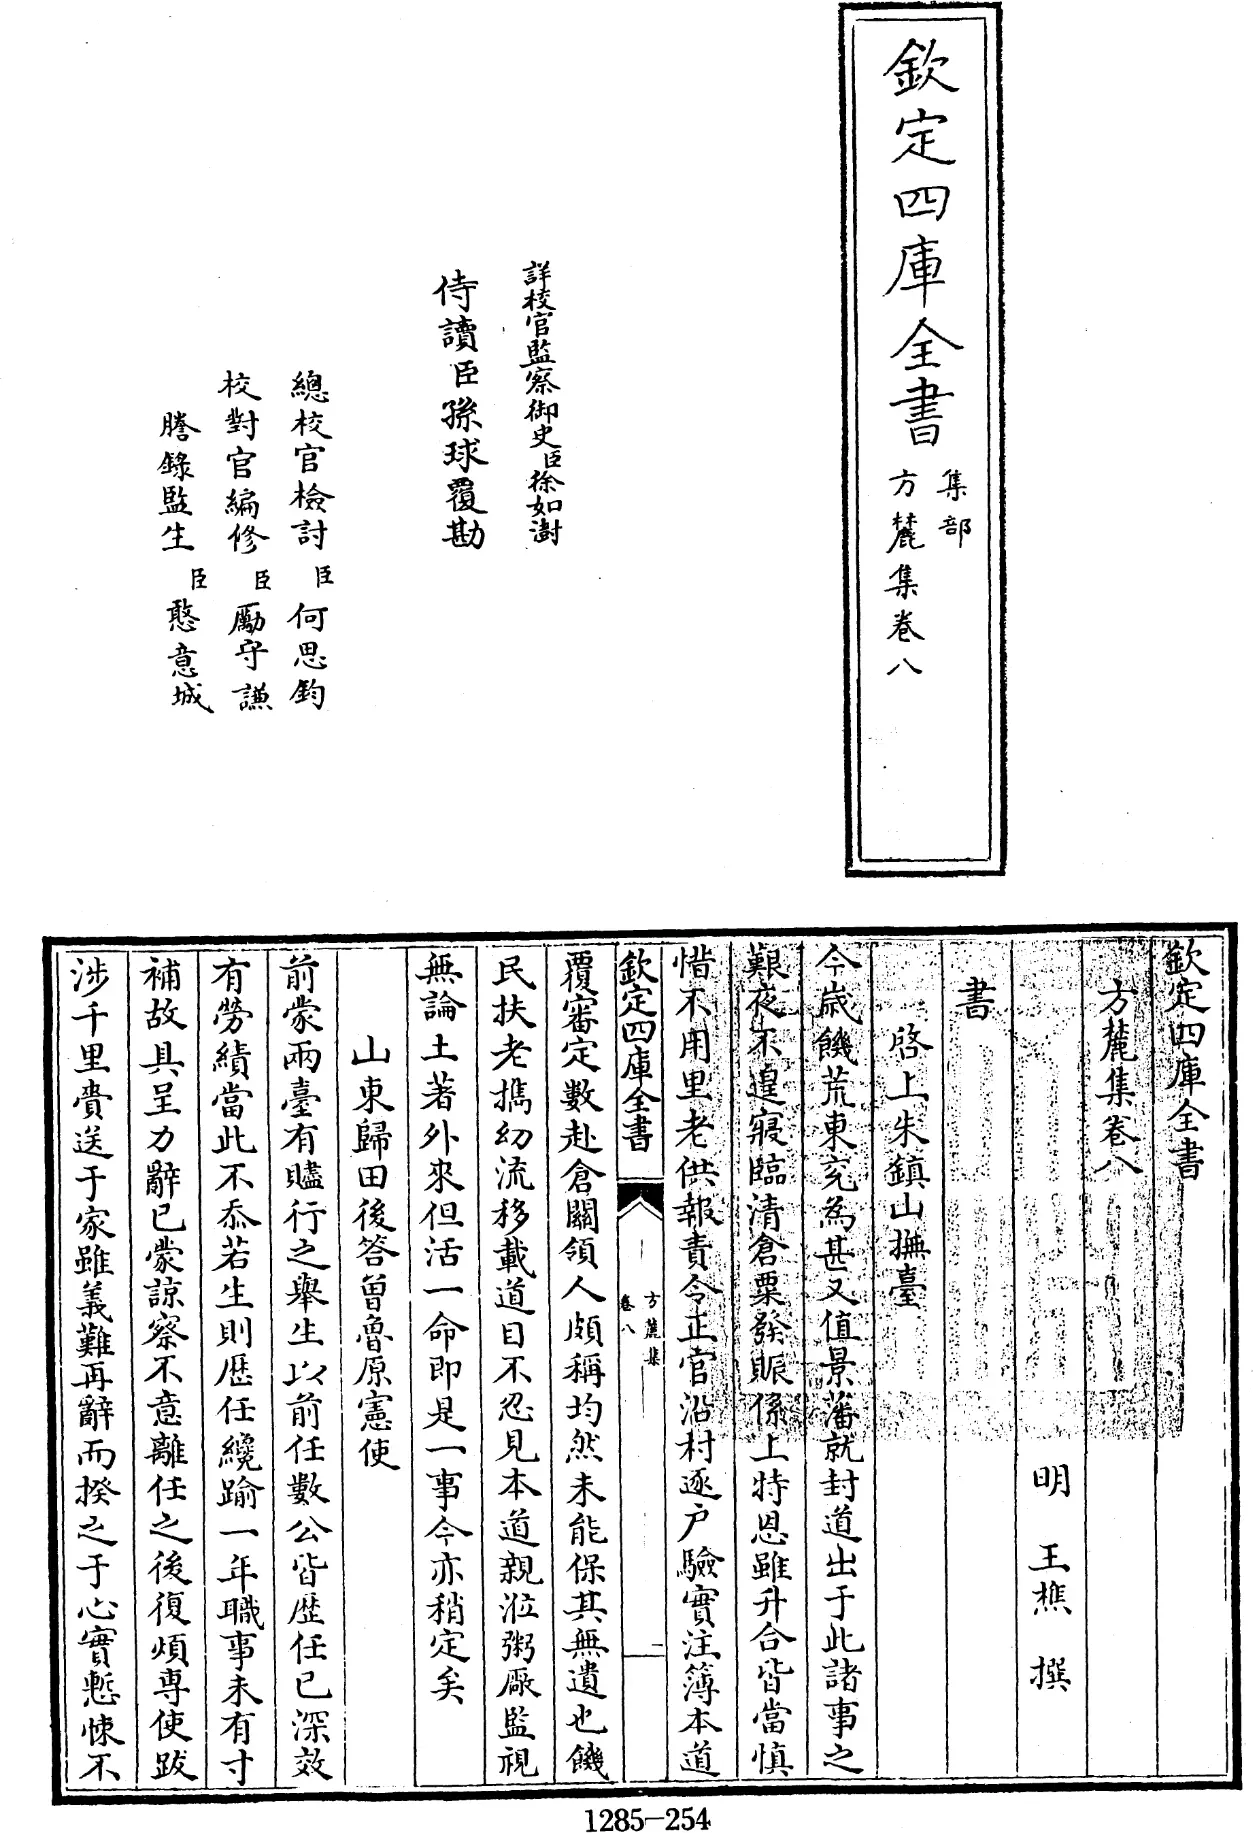 欽定四庫全書
集部
方麓集卷八
詳校官監察御史臣徐如澍
侍讀臣孫球覆勘
總校官檢討臣何思鈞
校對官編修臣勵守謙
謄錄監生臣憨意城
欽定四庫全書
方麓集卷八
明 王樵 撰
書
啓上朱鎮山撫臺
今歳饑荒東兖為甚又值景藩就封道出于此諸事之
艱夜不遑寢臨清倉粟發賑係上特恩雖升合皆當慎
惜不用里老供報責令正官沿村逐户驗實注簿本道
欽定四庫全書
方麓集
卷八
二
覆審定數赴倉關領人頗稱均然未能保其無遺也饑
民扶老攜幼流移載道目不忍見本道親涖粥厰監視
無論土著外來但活一命即是一事今亦稍定矣
山東歸田後答曾魯原憲使
前蒙兩臺有贐行之舉生以前任數公皆歷任已深效
有勞績當此不忝若生則歷任纔踰一年職事未有寸
補故具呈力辭已蒙諒察不意離任之後復煩專使跋
涉千里賫送于家雖義難再辭而揆之于心實慙悚不
1285-254